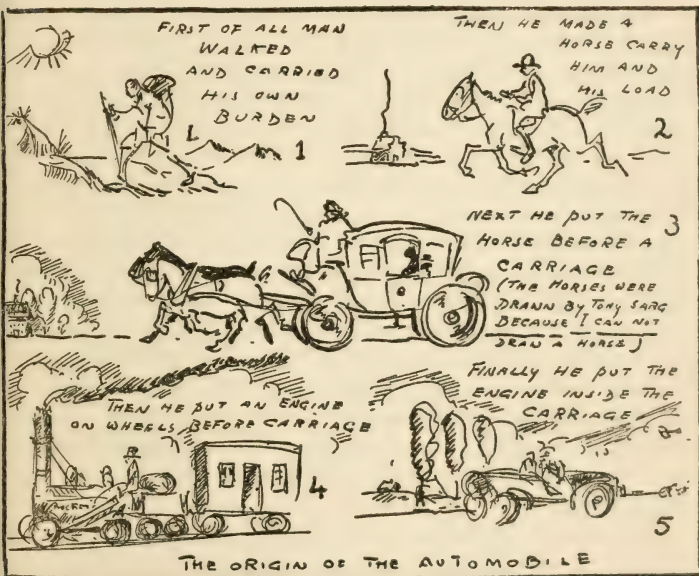 FIRST OF ALL MAN
WALKED
AND CARRIED
HIS OWN
BURDEN
1
THEN HE MADE A
HORSE CARRY
HIM AND
HIS LOAD
2
NEXT HE PUT THE 3
HORSE BEFORE A
CARRIAGE
(THE HORSES WERE
DRAWN BY TONY SARG
BECAUSE I CAN NOT
DRAW A HORSE)
THEN HE PUT AN ENGINE
ON WHEELS BEFORE CARRIAGE
ROCKET
4
FINALLY HE PUT THE
ENGINE INSIDE THE
CARRIAGE
5
THE ORIGIN OF THE AUTOMOBILE